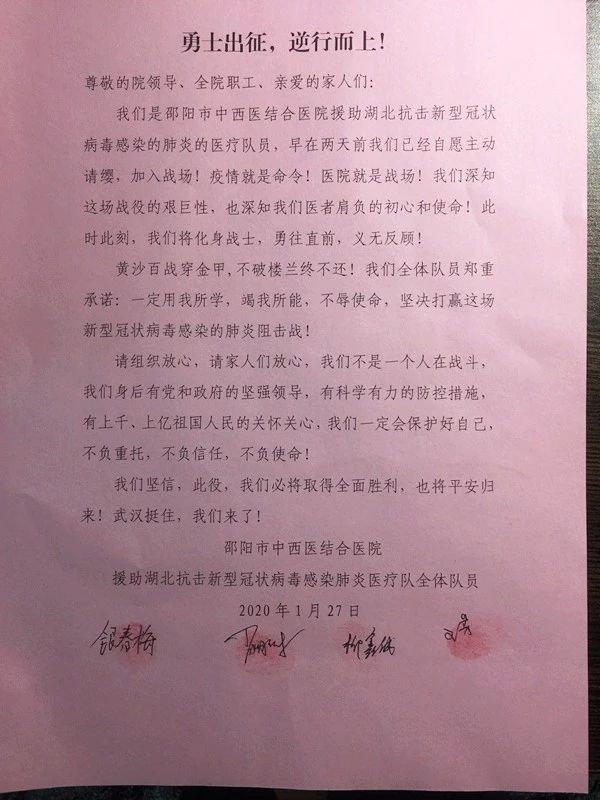 勇士出征，逆行而上！
尊敬的院领导、全院职工、亲爱的家人们：
我们是邵阳市中西医结合医院援助湖北抗击新型冠状
病毒感染的肺炎的医疗队员，早在两天前我们已经自愿主动
请缨，加入战场！疫情就是命令！医院就是战场！我们深知
这场战役的艰巨性，也深知我们医者肩负的初心和使命！此
时此刻，我们将化身战士，勇往直前，义无反顾！
黄沙百战穿金甲,不破楼兰终不还！我们全体队员郑重
承诺：一定用我所学，竭我所能，不辱使命，坚决打赢这场
新型冠状病毒感染的肺炎阻击战！
请组织放心，请家人们放心，我们不是一个人在战斗，
我们身后有党和政府的坚强领导，有科学有力的防控措施，
有上千、上亿祖国人民的关怀关心，我们一定会保护好自己，
不负重托，不负信任，不负使命！
我们坚信，此役，我们必将取得全面胜利，也将平安归
来！武汉挺住，我们来了！
邵阳市中西医结合医院
援助湖北抗击新型冠状病毒感染肺炎医疗队全体队员
2020 年 1 月 27 日
银春梅